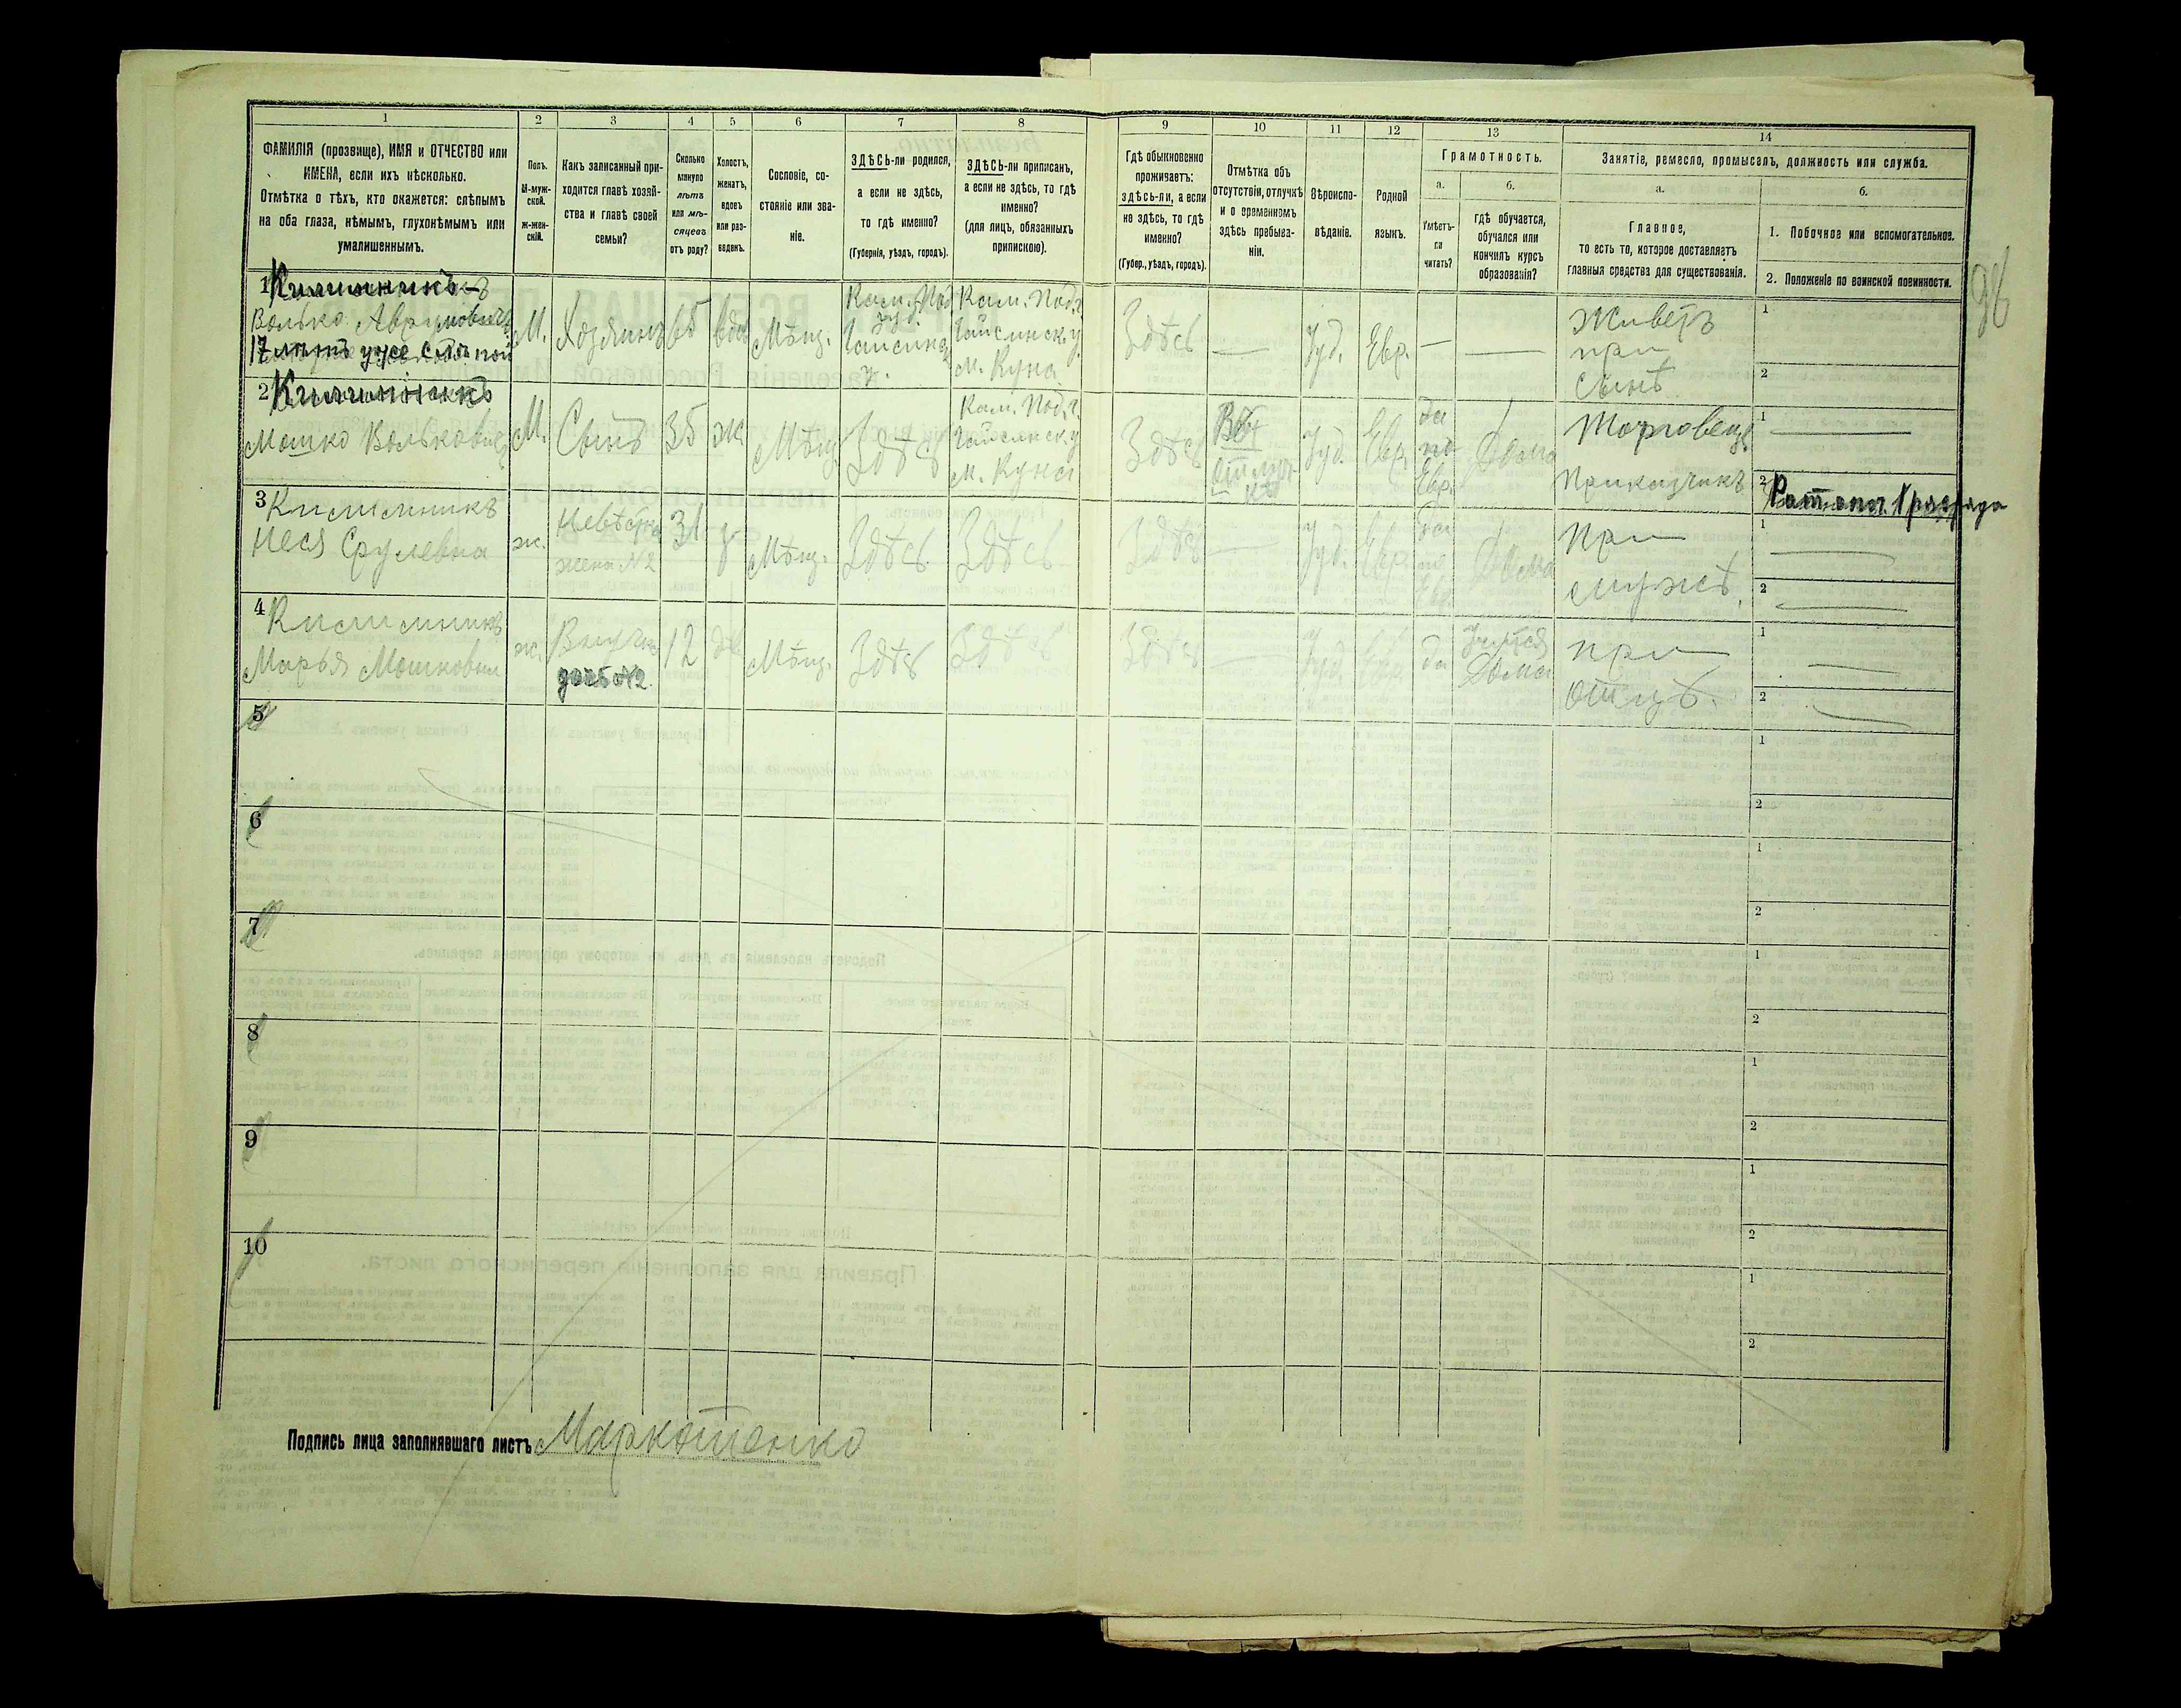 1 2 3 4 5 6 7 8 9 10 11 12 13 14
ФАМИЛІЯ (прозвище), ИМЯ и ОТЧЕСТВО или
ИМЕНА, если ихъ нѣсколько.
Отмѣтка о тѣхъ, кто окажется: слѣпымъ
на оба глаза, нѣмымъ, глухонѣмымъ или
умалишеннымъ.
Полъ.
М-муж-
ской.
Ж-жен-
скій.
Какъ записанный при-
ходится главѣ хозяй-
ства и главѣ своей
семьи?
Сколько
минуло
лѣтъ
или мѣ-
сяцевъ
отъ роду?
Холостъ,
женатъ,
вдовъ
или раз-
веденъ.
Сословіе, со-
стояніе или зва-
ніе.
ЗДѢСЬ-ли родился,
а если не здѣсь,
то гдѣ именно?
(Губернія, уѣздъ, городъ).
ЗДѢСЬ-ли приписанъ,
а если не здѣсь, то гдѣ
именно?
(для лицъ, обязанныхъ
припискою).
Гдѣ обыкновенно
проживаетъ:
здѣсь-ли, а если
не здѣсь, то гдѣ
именно?
(Губер., уѣздъ, городъ).
Отмѣтка объ
отсутствіи, отлучкѣ
и о временномъ
здѣсь пребыва-
ніи.
Вѣроиспо-
вѣданіе.
Родной
языкъ.
Грамотность.
а.
Умѣетъ-
ли
читать?
б.
гдѣ обучается,
обучался или
кончилъ курсъ
образованія?
Занятіе, ремесло, промыселъ, должность или служба.
а.
Главное,
то есть то, которое доставляетъ
главныя средства для существованія.
б.
1. Побочное или вспомогательное.
2. Положеніе по воинской повинности.
98
1
Волько Аврумовичъ
17 лѣтъ уже слѣпой
М.
Хозяинъ
65
вдов
Мѣщ.
Кам. Под.
Гайсинск.
у.
Кам. Под. г.
Гайсинск. у.
м. Куна
Здѣсь
—
Іуд.
Евр.
—
—
Живетъ
при
сынѣ
1
2
2
Мошко Вольковичъ
М.
Сынъ
35
ж.
Мѣщ.
Здѣсь
Кам. Под. г.
Гайсинск. у
м. Куна
Здѣсь
Въ
отлуч-
кѣ
Іуд.
Евр.
да
по
Евр.
Дома
Торговецъ
Приказчикъ
1
2
Ратник 1 разряда
3
Неся Срулевна
ж.
Невѣстка
жена №2
31
з
Мѣщ.
Здѣсь
Здѣсь
Здѣсь
—
Іуд.
Евр.
да
по
Евр
Дома
При
мужѣ.
1
2
4
Марья Мошковна
ж.
Внучка
дочь №2
12
дѣ
Мѣщ.
Здѣсь
Здѣсь
Здѣсь
—
Іуд.
Евр.
да
Учится
Дома
при
отцѣ.
1
2
5
1
2
6
1
2
7
1
2
8
1
2
9
1
2
10
1
2
Подпись лица заполнявшаго листъ Маркотенко